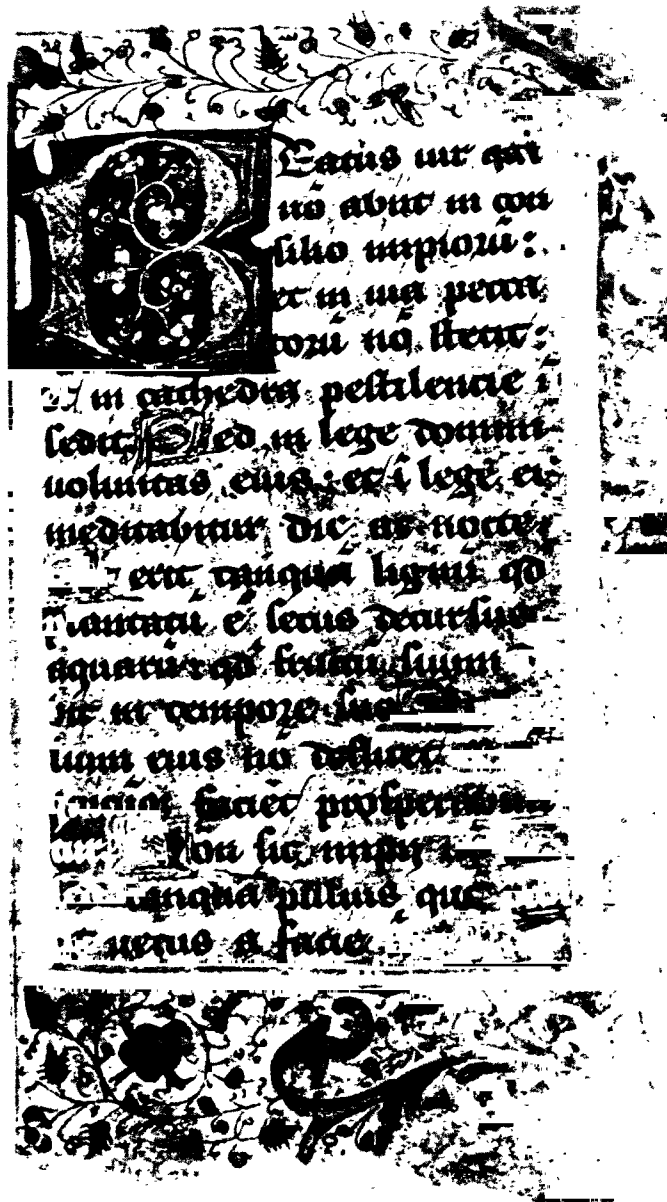 Beatus uir qui
nō abiit in con
silio impiorū :
et in uia pecca
torū nō stetit :
in cathedra pestilencie
sedit Sed in lege domini
uoluntas eius : et ī lege ei
meditabitur die ac nocte :
erit tanquā lignū qd
plantatū ē secus decursus
aquarū : qd fructū suum
in tempore suo
eius nō defluet
faciet prosperabun
Non sic impij
tanquā puluis que
uentus a facie